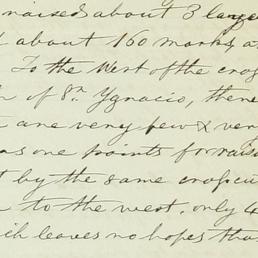 raised about 3 large
about 160 marks a
To the West of the cros
of Sn Ygnacio, there
are very few & very
as one points for raise
by the same croscu
to the west. only 4
ich leaves no hopes tha